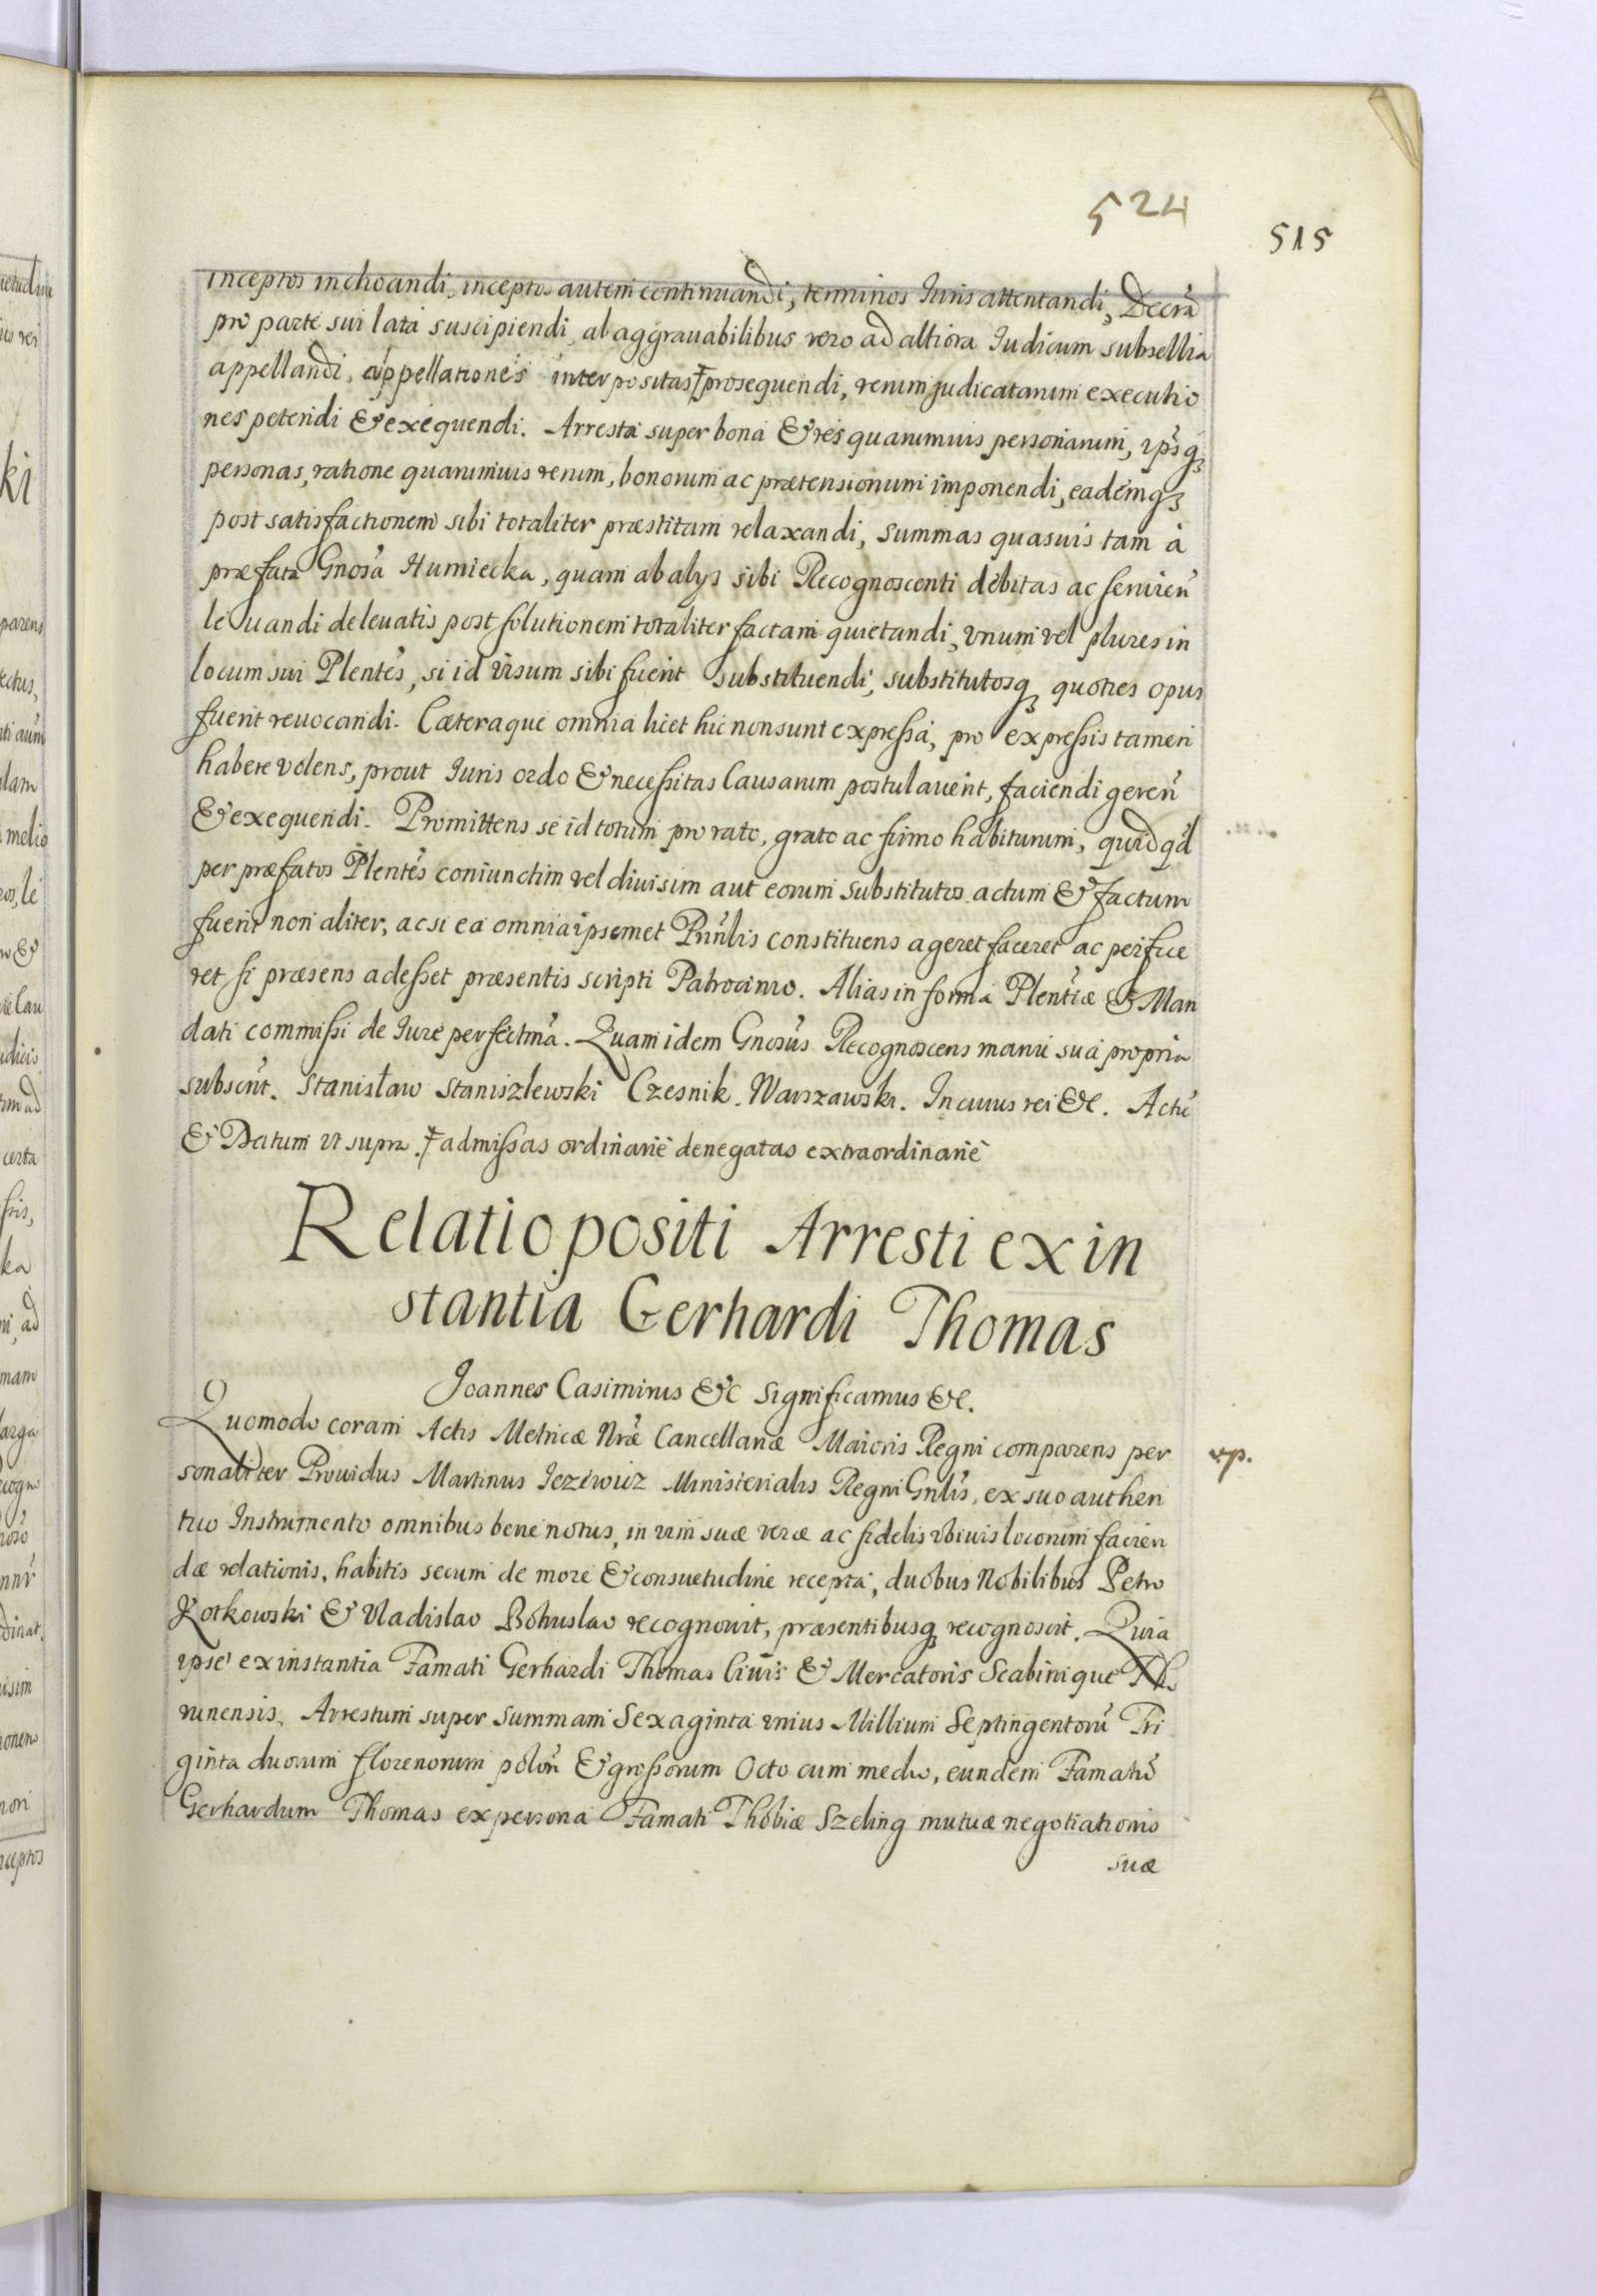 524
515
inceptos inchoandi, inceptos autem continuandi, terminos Iuris attentandi, Decrã
pro parte sui lata suscipiendi, ab aggrauabilibus vero ad altiora Iudicum subsellia
appellandi, appellationes interpositas ‡ prosequendi, rerum judicatarum executio
nes petendi & exequendi. Arresta super bona & res quarumuis personarum, ipsq̃
personas, ratione quarumuis rerum, bonorum ac prætensionum imponendi, eademq̃
post satisfactionem sibi totaliter præstitam relaxandi, summas quasuis tam à
præfata Gnosa Humiecka, quam ab alys sibi Recognoscenti debitas ac seruien̄
leuandi de leuatis post solutionem totaliter factam quietandi, vnum vel plures in
locum sui Plentes, si id visum sibi fuerit substituendi, substitutosq̃ quoties opus
fuerit reuocandi. Cæteraque omnia licet hic non sunt expressa, pro expressis tamen
habere volens, prout Iuris ordo & necessitas Causarum postulauerit, faciendi geren̄
& exequendi. Promittens se id totum pro rato, grato ac firmo habiturum, quidq̃d
per præfatos Plentes coniunctim vel diuisim aut eorum substitutos actum & factum
fuerit non aliter, ac si ea omnia ipsemet Prinlis constituens ageret faceret ac perfice
ret si præsens adesset præsentis scripti Patrocinio. Alias in forma Plentiæ & Man
dati commissi de Iure perfectma. Quam idem Gnosus Recognoscens manu sua propria
subscrit. Stanisław Staniszlewski Czesnik Warszawski. In cuius rei &c. Actũ
& Datum vt supra. ‡ admissas ordinariè denegatas extraordinariè
Relatio positi Arresti ex in
stantia Gerhardi Thomas
Joannes Casimirus &c Significamus &c.
Quomodo coram Actis Metricæ Nræ Cancellariæ Maioris Regni comparens per
sonaliter Prouidus Martinus Jezewicz Ministerialis Regni Gnlis, ex suo authen
tico Instrumento omnibus bene notus, in vim suæ veræ ac fidelis vbiuis locorum facien
dæ relationis, habitis secum de more & consuetudine recepta, duobus Nobilibus Petro
Kotkowski & Vladislao Bohuslao recognouit, præsentibusq̃ recognoscit. Quia
ipse ex instantia Famati Gerhardi Thomas Ciuis & Mercatoris Scabinique Tho
runensis, Arrestum super Summam Sexaginta vnius Millium Septingentorũ Tri
ginta duorum florenorum polon & grossorum Octo cum medio, eundem Famatũ
Gerhardum Thomas ex persona Famati Thobiæ Szeling mutuæ negotiationis
suæ